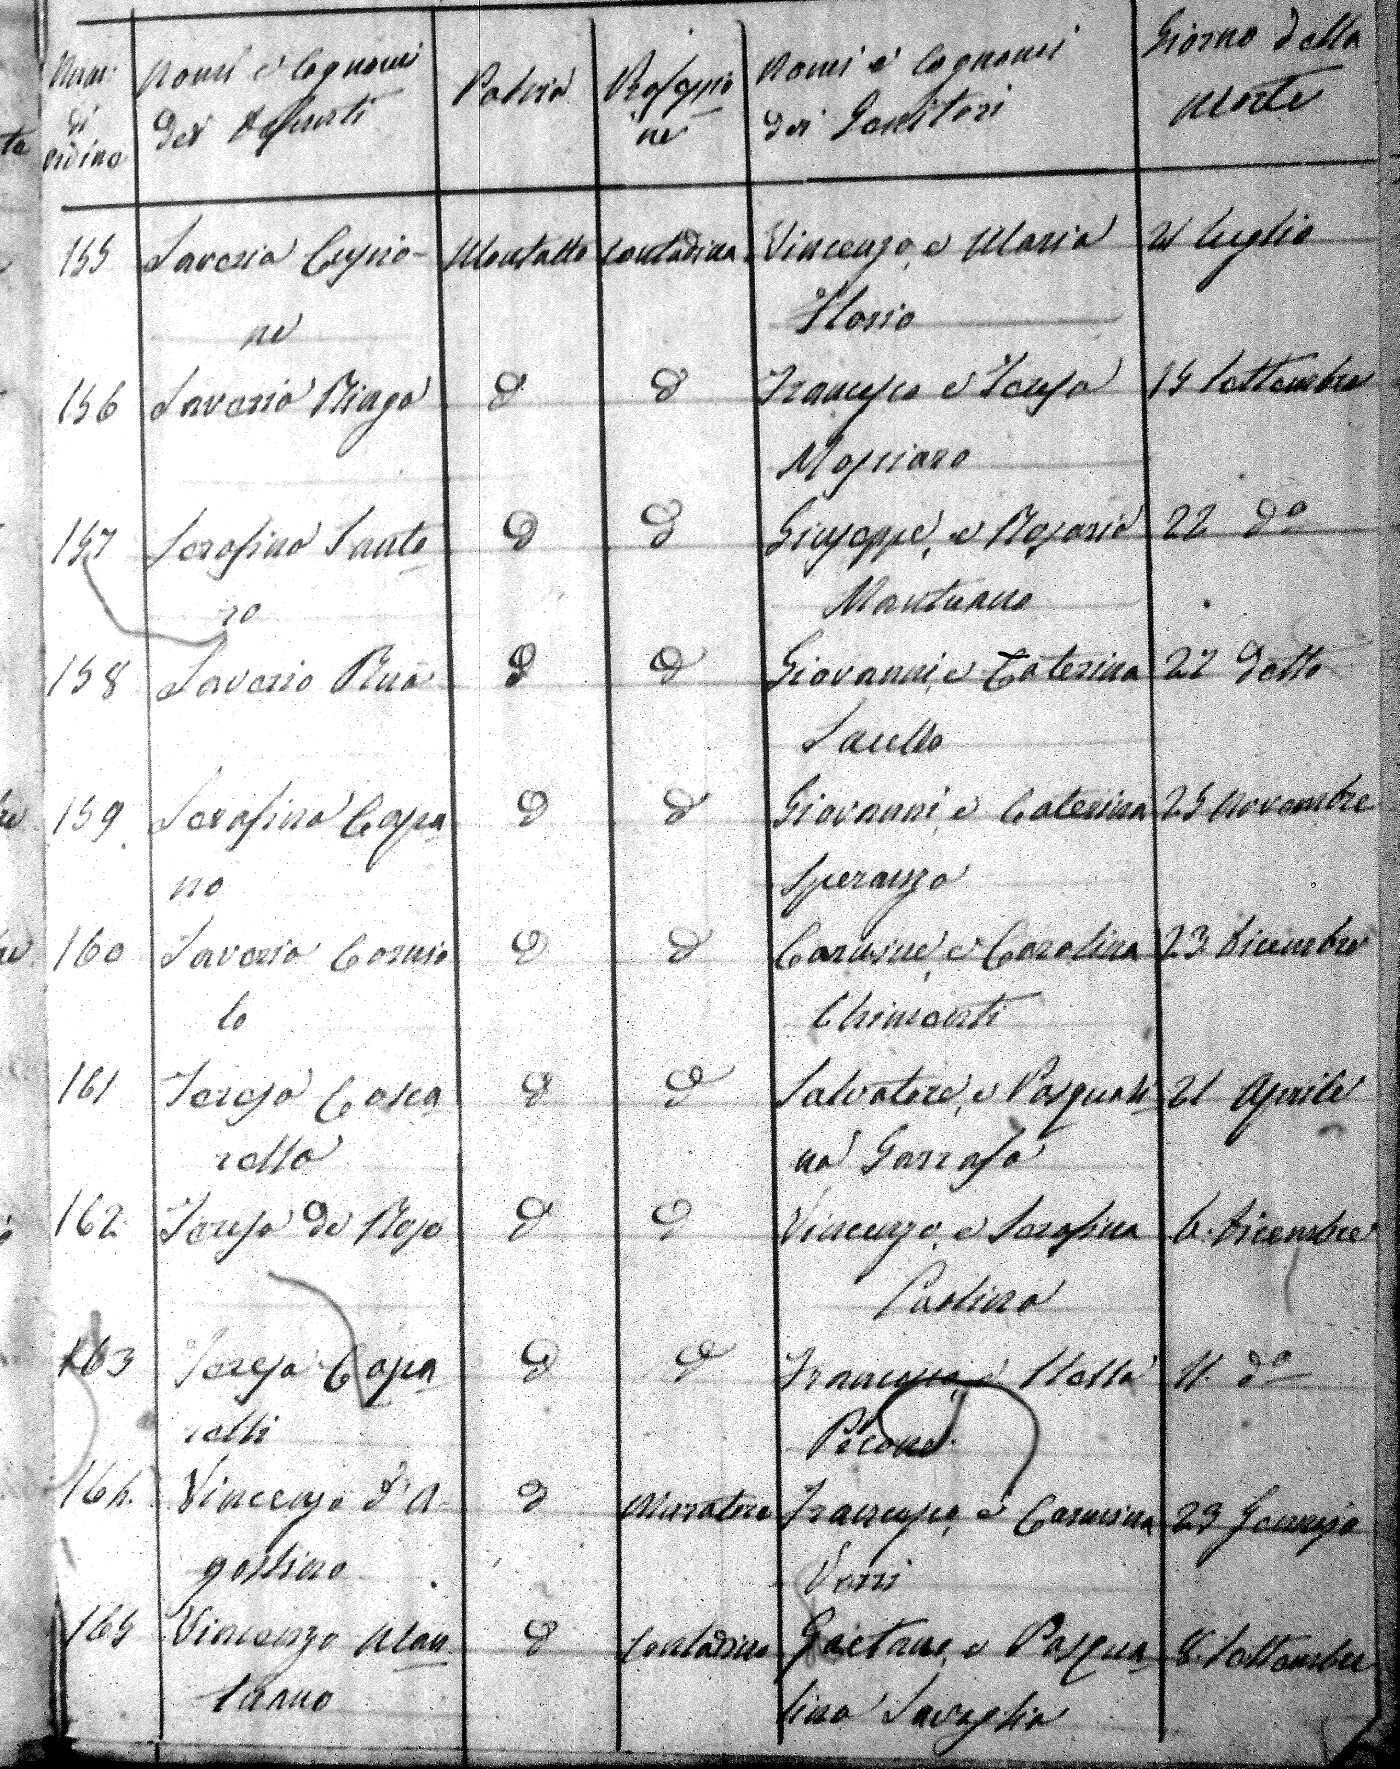 Num: di ordine
Nomi e Cognomi dei Defunti
Patria
Professione
Nomi e Cognomi dei Genitori
Giorno della morte
155 Saveria Ciprione Montalto Contadina Vincenzo, e Maria Florio 21 luglio
156 Saverio Bingo D D Francesco e Teresa Mosciaro 15 Settembre
157 Serafina Santoro D D Giuseppe, e Rosaria Mantuano 22 do
158 Saverio Rua D D Giovanni, e Caterina Saullo 27 detto
159 Serafina Capano D D Giovanni, e Caterina Speranza 25 Novembre
160 Saverio Cornolo D D Carmine, e Carolina Chimenti 23 Dicembre
161 Teresa Coscarella D D Salvatore, e Pasqualina Garrafa 21 Aprile
162 Teresa De Rosa D D Vincenzo, e Serafina Paolino 6. Dicembre
163 Teresa Caparelli D D Stella 11. do
164. Vincenzo d'Agostino D Muratore Francesco, e Carmina Verri 29 Gennajo
165 Vincenzo Mantuano D Contadino Gaetano, e Pasqualina Savaglia 8. Settembre